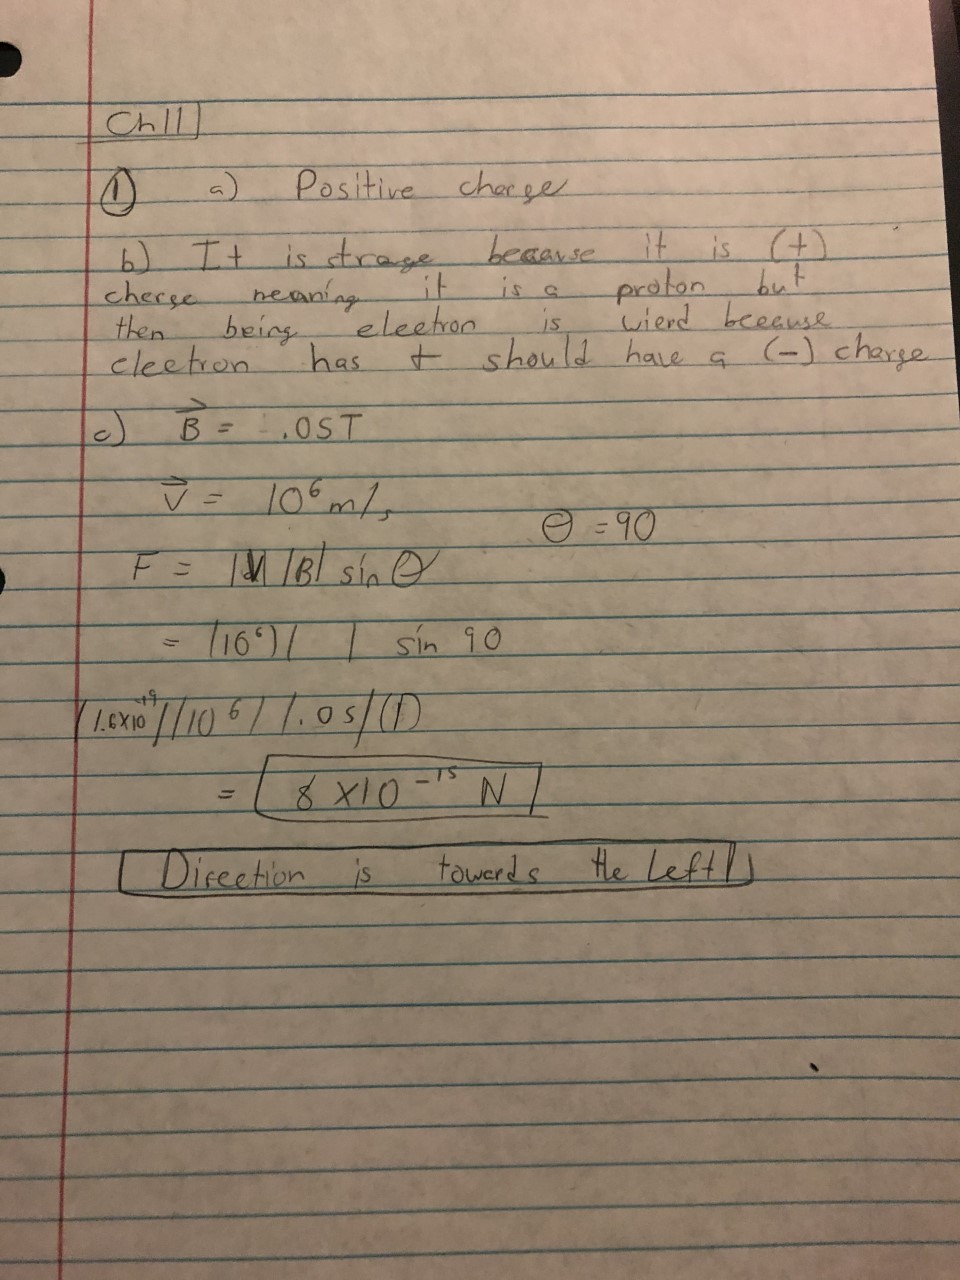 Ch 11
① a) Positive charge
b) It is strage because it is (+)
cherge meaning it is a proton but
then being electron is wierd because
electron has + should have a (-) charge
c) B⃗ = .05T
V⃗ = 10⁶ m/s
θ = 90
F = |V| |B| sin θ
= |10⁶| | | sin 90
|1.6x10⁻¹⁹| |10⁶| |.05| (1)
= 8 x10⁻¹⁵ N
Direction is towards the Left